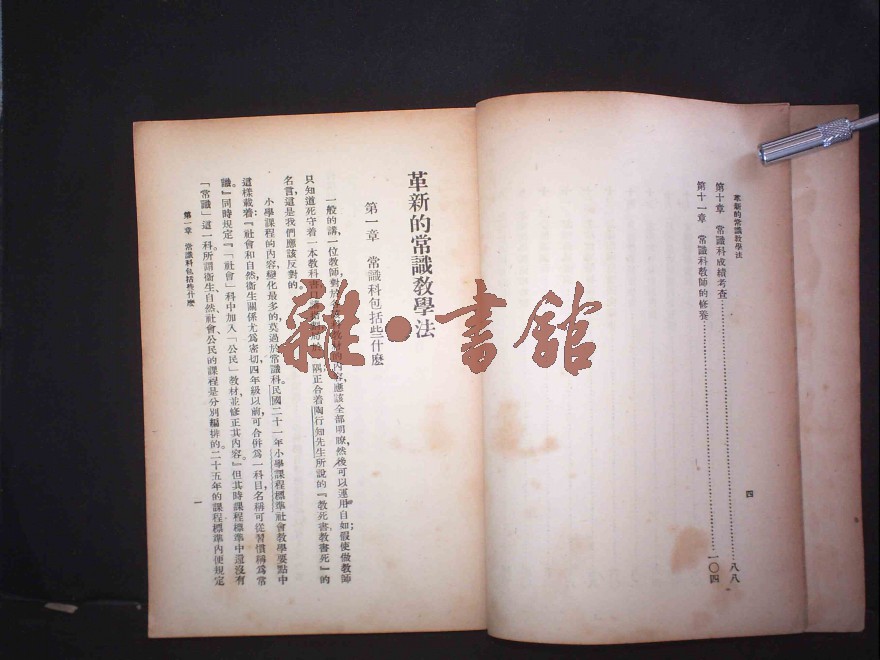 革新的常識教學法
第十章 常識科成績考查……八八
第十一章 常識科教師的修養……一〇四
四
革新的常識教學法
第一章 常識科包括些什麼
一般的講,一位教師對於 的內容,應該全部明瞭,然後可以運用自如;假使做教師
只知道死守着一本教科書, 隅,正合着陶行知先生所說的『教死書,教書死』的
名言,這是我們應該反對的。
小學課程的內容,變化最多的,莫過於常識科。民國二十一年小學課程標準社會教學要點中
這樣載着:『社會和自然,衞生關係尤爲密切,四年級以前,可合併爲一科目,名稱可從習慣稱爲常
識。』同時規定『「社會」科中加入「公民」教材,並修正其內容。』但其時課程標準中還沒有
「常識」這一科。所謂衞生、自然、社會、公民的課程是分別編排的。二十五年的課程標準內便規定
第一章 常識科包括些什麼
一
雜·書館